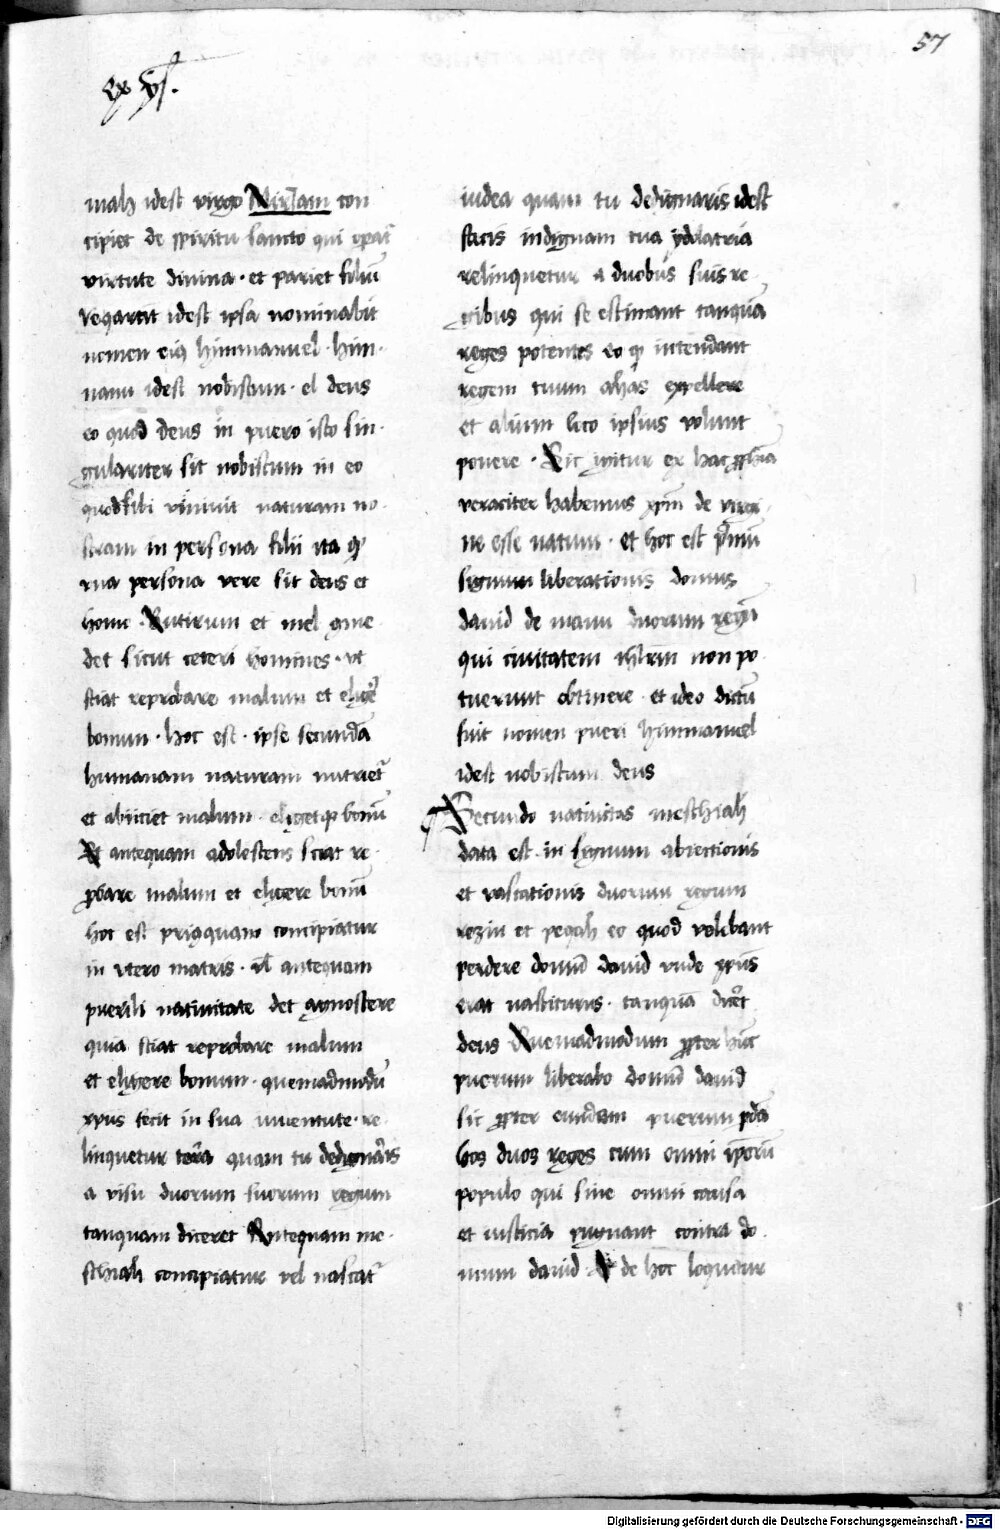 57
mah idest virgo Mirjam con
cipiet de spiritu sancto qui opat᷑
virtute divina · et pariet filiū
veqartit idest ipsa nominabit
nomen eiꝯ himmanuel · him ·
nanu idest nobiscum · el deus
eo quod deus in puero isto sin ·
gulariter sit nobiscum in eo
quod sibi vnivit naturam no ·
stram in persona filii ita ꝙ
vna persona vere sit deus et
homo · Butirum et mel ꝯme ·
det sicut ceteri homines · vt
sciat reprobare malum et elig̾e
bonum · hoc est · ipse secundā
humanam naturam nutriet᷑
et abiiciet malum · eligetqꝫ bonū
Et antequam adolescens sciat re ·
ꝓbare malum et eligere bonū
hoc est priꝯquam concipiatur
in vtero matris · vl̄ antequam
puerili nativitate det agnoscere
quia sciat reprobare malum
et eligere bonum · quemadmodū
xp̄us fecit in sua iuventute · re ·
linquetur terra quam tu dedignar̄is
a visu duorum suorum regum
tanquam diceret Antequam me ·
schiah concipiatur vel nascat᷑
iudea quam tu dedignaris idest
facis indignam tua ydolatria
relinquetur a duobus suis re ·
gibus qui se estimant tanquā
reges potentes eo ꝙ intendant
regem tuum ahas expellere
et alium loco ipsius volunt
ponere · Sic igitur ex hac ꝓphīa
veraciter habemus xp̄m de virgi ·
ne esse natum · et hoc est p̄mū
signum liberationis domus
david de manu duorum regū
qui civitatem ihr̄lm non po ·
tuerunt obtinere · et ideo dictū
fuit nomen pueri himmanuel
idest nobiscum deus
¶ Secundo nativitas meschiah
data est in signum abiectionis
et vastationis duorum regum
rezin et peqah eo quod volebant
perdere domū david vnde xp̄us
erat nasciturus · tanquā dic̾et
deus Quemadmodum ꝓpter hūc
puerum liberabo domū david
sic ꝓpter eundem puerum ꝑdā
hos duos reges cum omni ip̄orū
populo qui sine omni causa
et iusticia pugnant contra do ·
mum david · Et de hoc loquitur
Digitalisierung gefördert durch die Deutsche Forschungsgemeinschaft - DFG